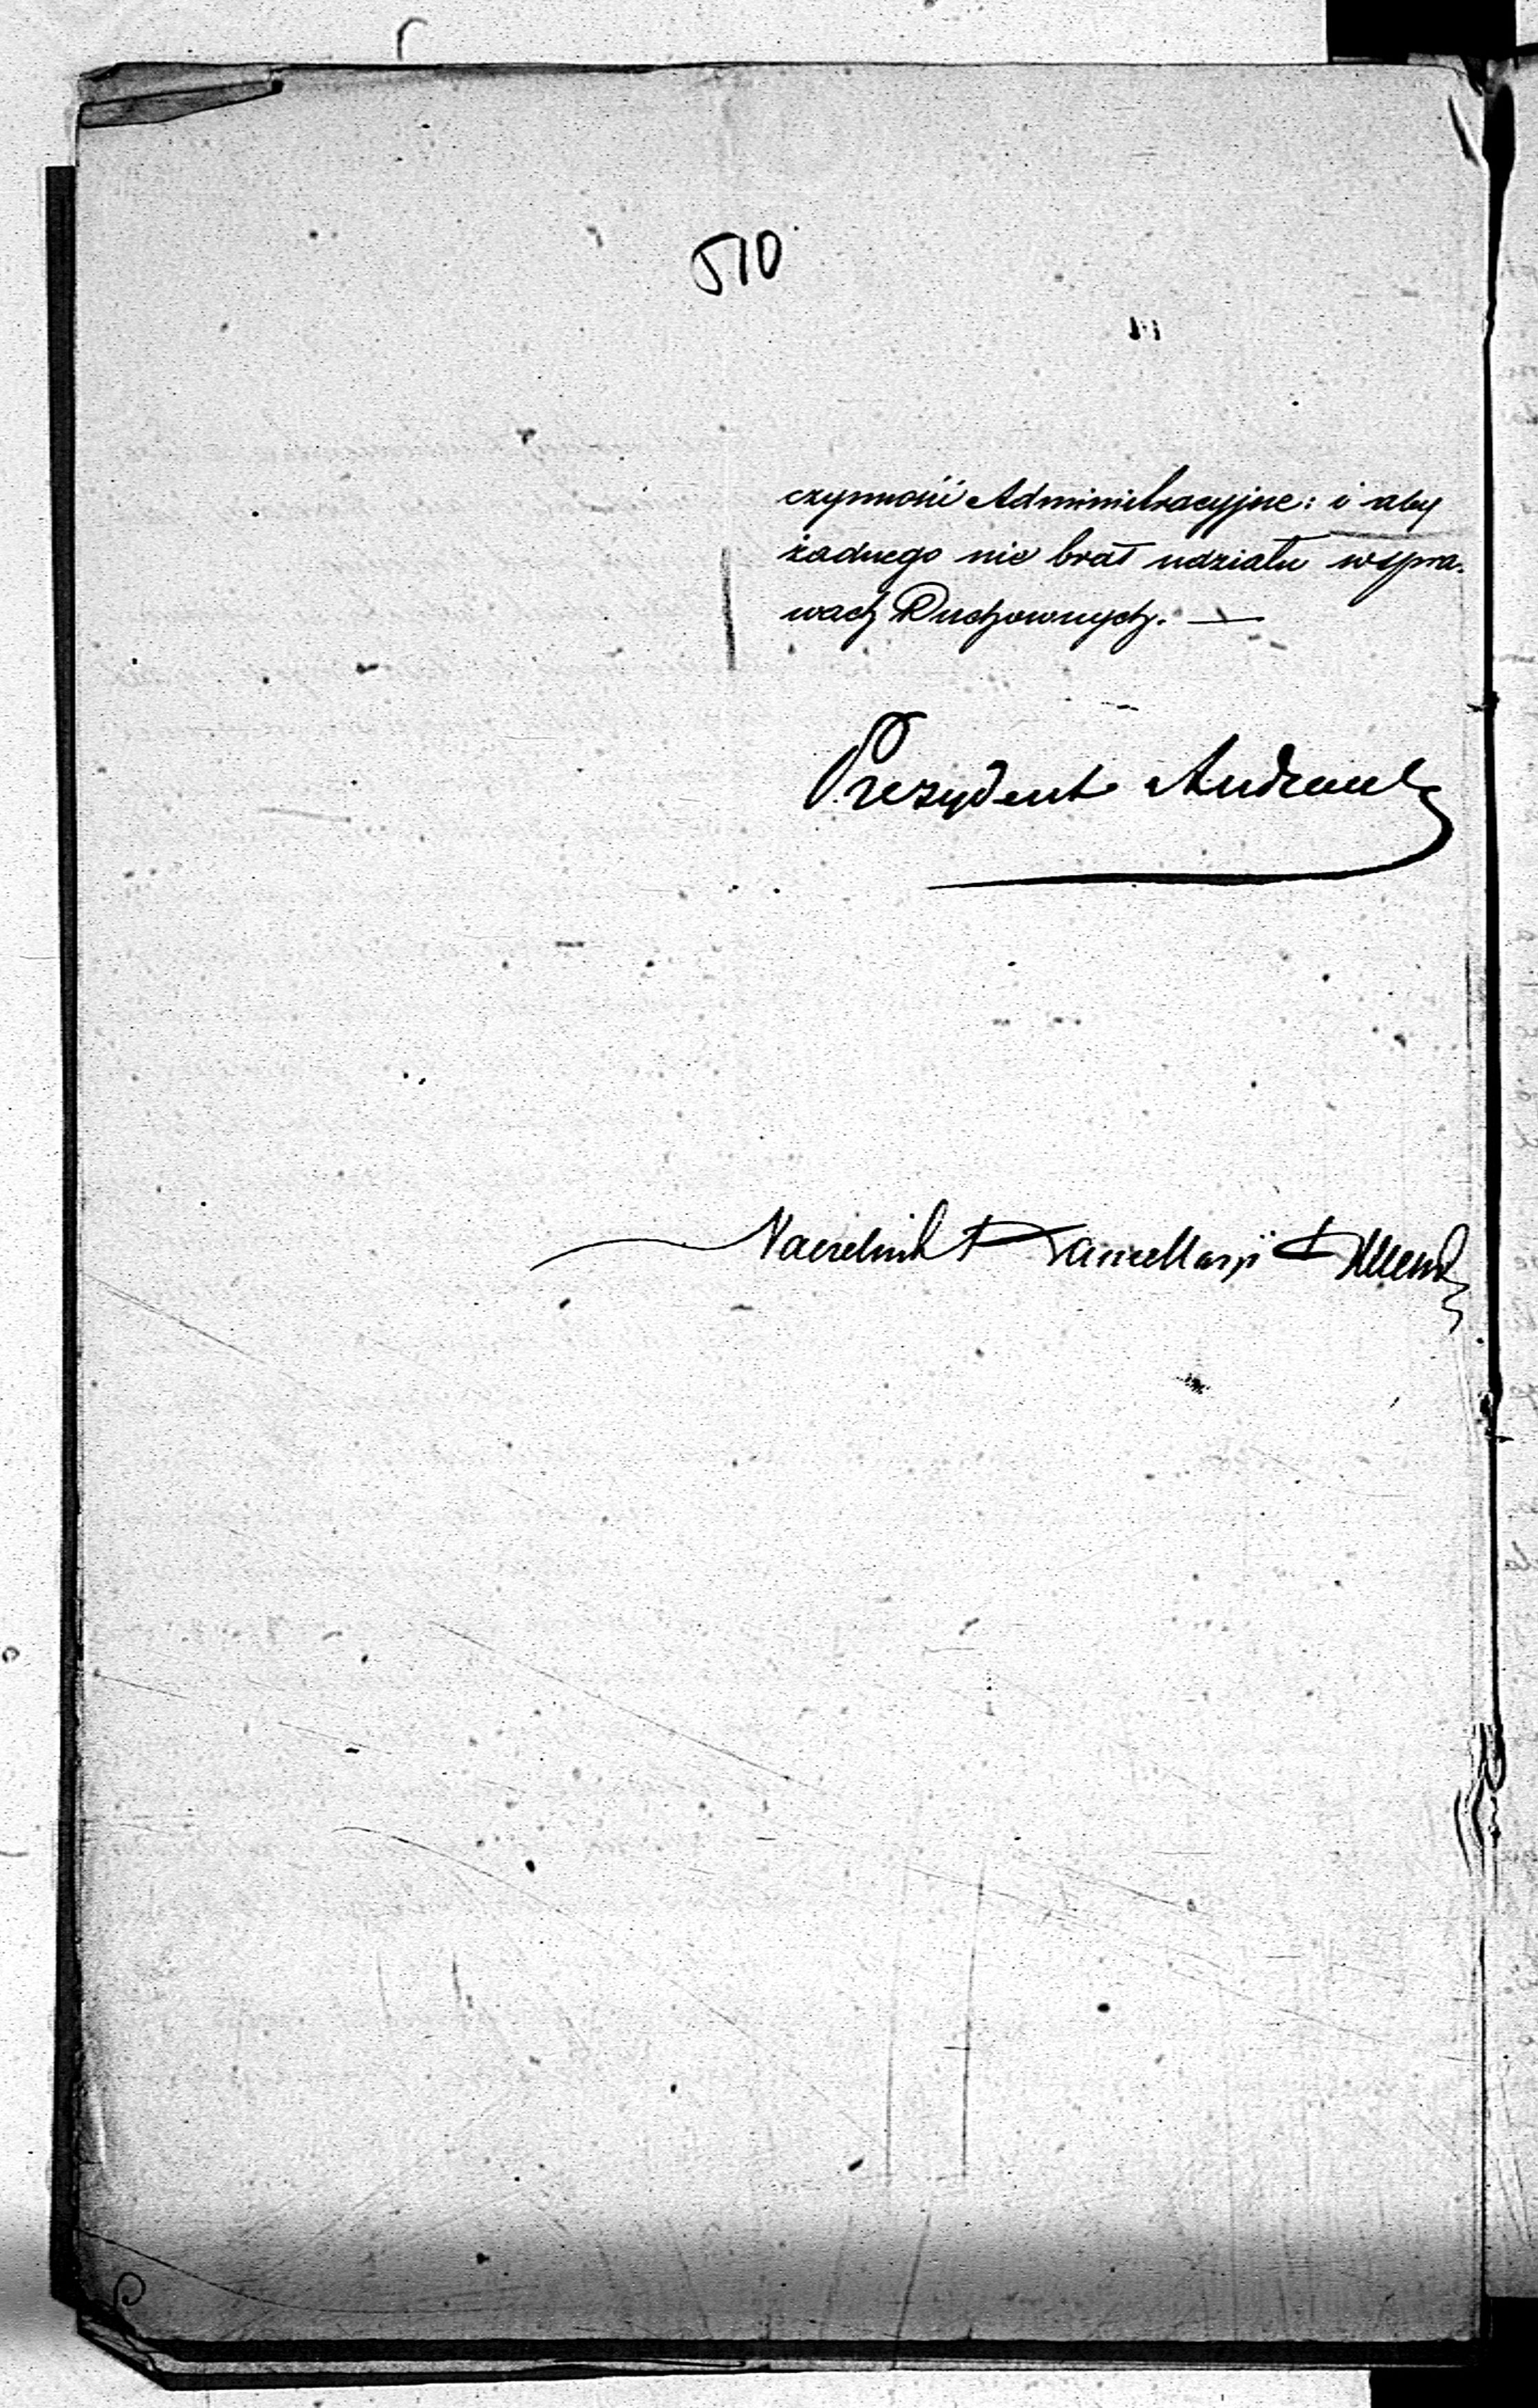 510
czynności Administracyjne: i aby
żadnego nie brał udziału w spra-
wach Duchownych. —
Prezydent Andrault
Naczelnik Kancellaryi